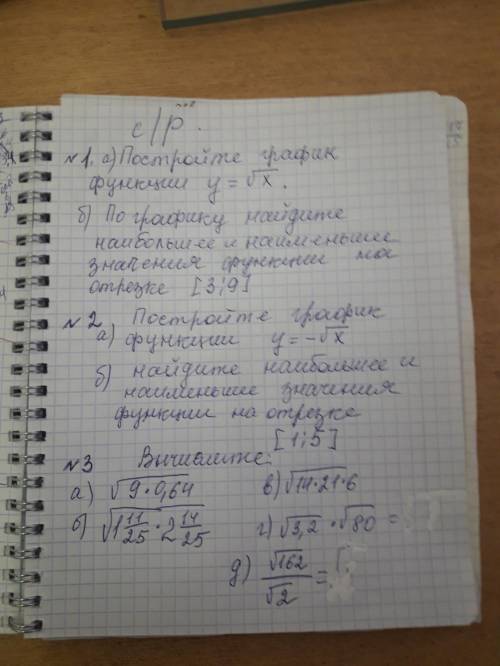 с/р.
№1. а) Постройте график
функции y = √x.
б) По графику найдите
наибольшее и наименьшее
значения функции на
отрезке [3; 9]
№2 Постройте график
а) функции y = -√x
б) найдите наибольшее и
наименьшие значения
функции на отрезке
[1; 5]
№3 Вычислите:
а) √9·0,64 в) √14·21·6
б) √1 11/25 · 2 14/25 г) √3,2 · √80 =
д) √162/√2 =